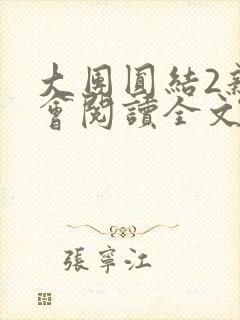 大團圓結2新
會閱讀全文
張寧江